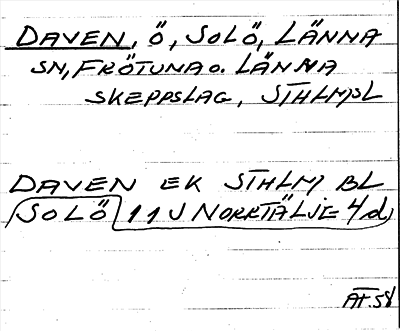 DAVEN, Ö, SOLÖ, LÄNNA
SN, FRÖTUNA O. LÄNNA
SKEPPSLAG, STHLMSL
DAVEN EK STHLM BL
SOLÖ 11J NORRTÄLJE 4d
AT.58